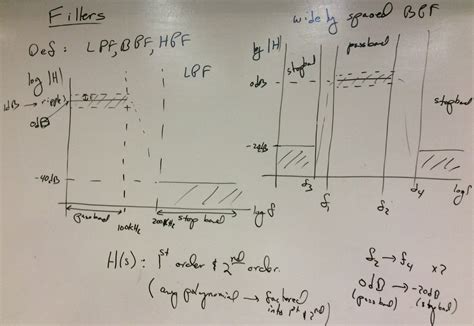 Filters
Def: LPF, BPF, HPF
LPF
log |H|
1dB → ripple
0dB
-40dB
passband
100kHz
200kHz
stop band
log f
widely spaced BPF
log |H|
passband
stopband
0dB
stopband
-20dB
f3
f1
f2
f4
log f
H(s): 1st order & 2nd order.
(any polynomial → factored
into 1st & 2nd)
f2 → f4 x?
0dB → -20dB
(passband) (stopband)